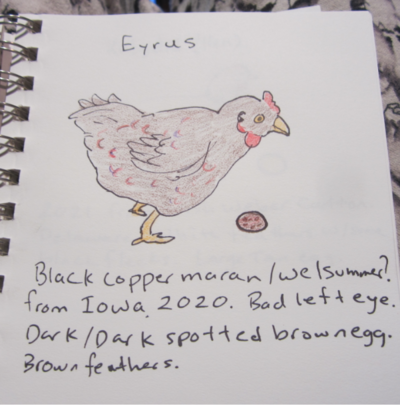 Eyrus
Black copper maran/welsummer?
from Iowa, 2020. Bad left eye.
Dark/Dark spotted brown egg.
Brown feathers.